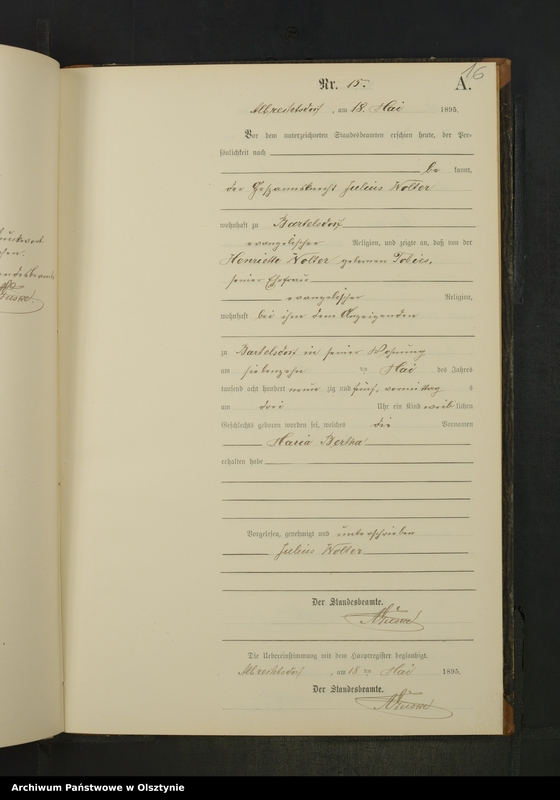 16
Nr. 15. A.
Albrechtsdorf, am 18. Mai 1895.
Vor dem unterzeichneten Standesbeamten erschien heute, der Per-
sönlichkeit nach
be kannt,
der Julius Wolter
wohnhaft zu Bartelsdorf
evangelischer Religion, und zeigte an, daß von der
Henriette Wolter geborenen Tobies,
seiner Ehefrau
evangelischer Religion,
wohnhaft bei ihm dem Anzeigenden
zu Bartelsdorf in seiner Wohnung
am siebenzehn ten Mai des Jahres
tausend acht hundert neun zig und fünf, vormittag s
um drei Uhr ein Kind weib lichen
Geschlechts geboren worden sei, welches die Vornamen
Maria Bertha
erhalten habe
Vorgelesen, genehmigt und unterschrieben
Julius Wolter
Der Standesbeamte.
Die Uebereinstimmung mit dem Hauptregister beglaubigt.
Albrechtsdorf, am 18 ten Mai 1895.
Der Standesbeamte.
Archiwum Państwowe w Olsztynie